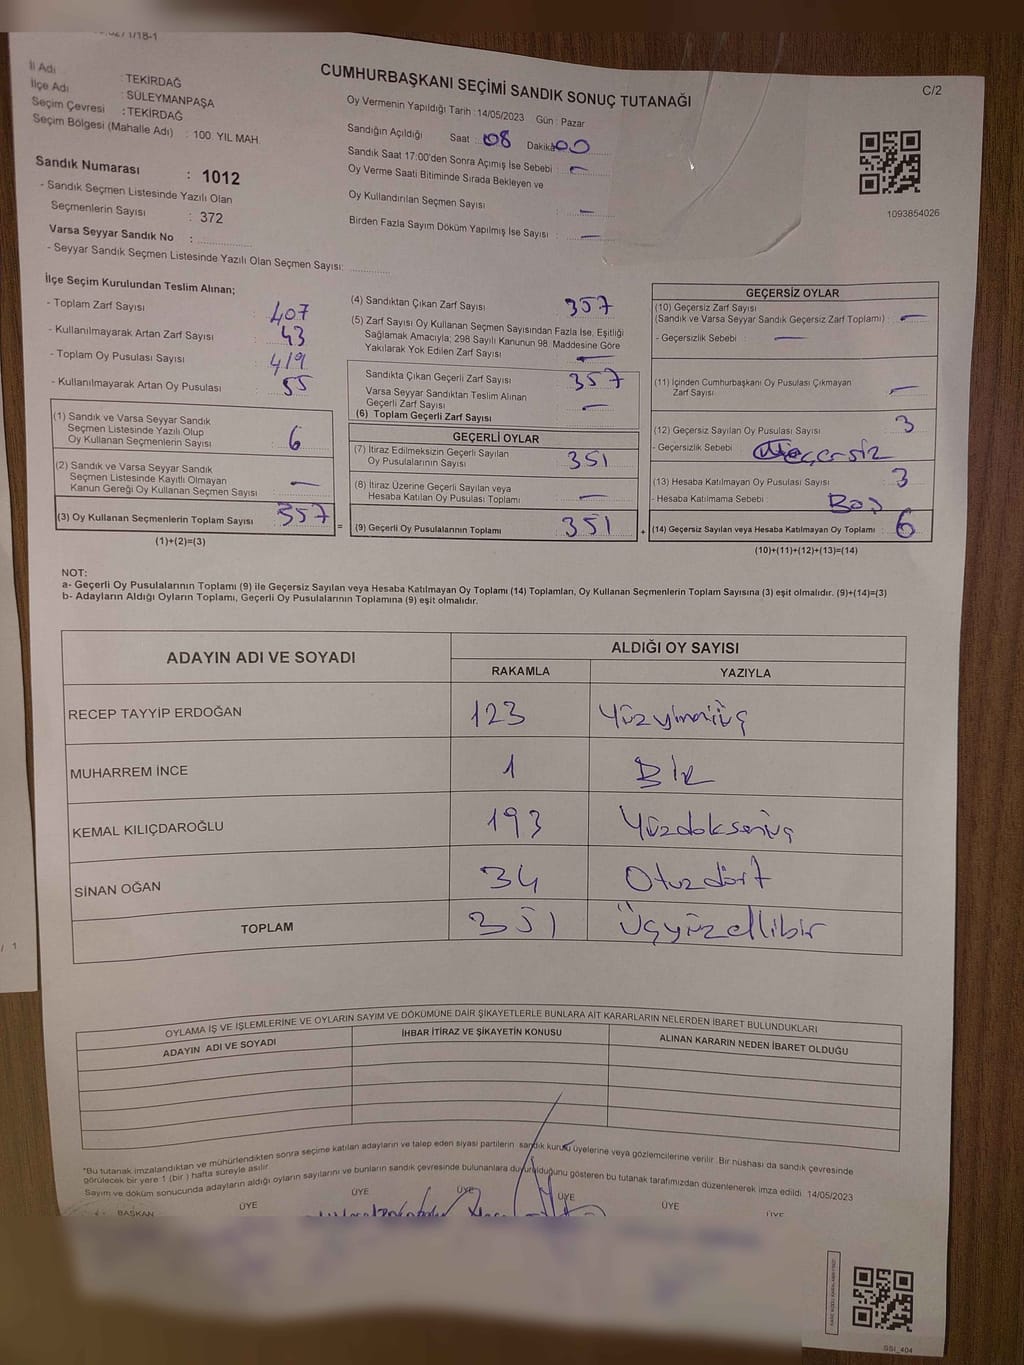 C/2
CUMHURBAŞKANI SEÇİMİ SANDIK SONUÇ TUTANAĞI
İl Adı : TEKİRDAĞ
İlçe Adı : SÜLEYMANPAŞA
Seçim Çevresi : TEKİRDAĞ
Seçim Bölgesi (Mahalle Adı) : 100. YIL MAH.
Sandık Numarası : 1012
- Sandık Seçmen Listesinde Yazılı Olan
Seçmenlerin Sayısı : 372
Varsa Seyyar Sandık No :
- Seyyar Sandık Seçmen Listesinde Yazılı Olan Seçmen Sayısı:
Oy Vermenin Yapıldığı Tarih : 14/05/2023 Gün : Pazar
Sandığın Açıldığı Saat 08 Dakika 00
Sandık Saat 17:00'den Sonra Açımış İse Sebebi : —
Oy Verme Saati Bitiminde Sırada Bekleyen ve
Oy Kullandırılan Seçmen Sayısı : —
Birden Fazla Sayım Döküm Yapılmış İse Sayısı : —
1093854026
İlçe Seçim Kurulundan Teslim Alınan;
- Toplam Zarf Sayısı : 407
- Kullanılmayarak Artan Zarf Sayısı : 43
- Toplam Oy Pusulası Sayısı : 419
- Kullanılmayarak Artan Oy Pusulası : 55
(1) Sandık ve Varsa Seyyar Sandık
Seçmen Listesinde Yazılı Olup
Oy Kullanan Seçmenlerin Sayısı : 6
(2) Sandık ve Varsa Seyyar Sandık
Seçmen Listesinde Kayıtlı Olmayan
Kanun Gereği Oy Kullanan Seçmen Sayısı : —
(3) Oy Kullanan Seçmenlerin Toplam Sayısı : 357
(1)+(2)=(3)
(4) Sandıktan Çıkan Zarf Sayısı : 357
(5) Zarf Sayısı Oy Kullanan Seçmen Sayısından Fazla İse, Eşitliği
Sağlamak Amacıyla; 298 Sayılı Kanunun 98. Maddesine Göre
Yakılarak Yok Edilen Zarf Sayısı : —
Sandıkta Çıkan Geçerli Zarf Sayısı : 357
Varsa Seyyar Sandıktan Teslim Alınan
Geçerli Zarf Sayısı : —
(6) Toplam Geçerli Zarf Sayısı
GEÇERLİ OYLAR
(7) İtiraz Edilmeksizin Geçerli Sayılan
Oy Pusulalarının Sayısı : 351
(8) İtiraz Üzerine Geçerli Sayılan veya
Hesaba Katılan Oy Pusulası Toplamı : —
(9) Geçerli Oy Pusulalarının Toplamı : 351
GEÇERSİZ OYLAR
(10) Geçersiz Zarf Sayısı
(Sandık ve Varsa Seyyar Sandık Geçersiz Zarf Toplamı) : —
- Geçersizlik Sebebi : —
(11) İçinden Cumhurbaşkanı Oy Pusulası Çıkmayan
Zarf Sayısı : —
(12) Geçersiz Sayılan Oy Pusulası Sayısı : 3
- Geçersizlik Sebebi : Geçersiz
(13) Hesaba Katılmayan Oy Pusulası Sayısı : 3
- Hesaba Katılmama Sebebi : Boş
(14) Geçersiz Sayılan veya Hesaba Katılmayan Oy Toplamı : 6
(10)+(11)+(12)+(13)=(14)
NOT:
a- Geçerli Oy Pusulalarının Toplamı (9) ile Geçersiz Sayılan veya Hesaba Katılmayan Oy Toplamı (14) Toplamları, Oy Kullanan Seçmenlerin Toplam Sayısına (3) eşit olmalıdır. (9)+(14)=(3)
b- Adayların Aldığı Oyların Toplamı, Geçerli Oy Pusulalarının Toplamına (9) eşit olmalıdır.
ADAYIN ADI VE SOYADI ALDIĞI OY SAYISI
RAKAMLA YAZIYLA
RECEP TAYYİP ERDOĞAN 123 Yüzyirmiüç
MUHARREM İNCE 1 Bir
KEMAL KILIÇDAROĞLU 193 Yüzdoksanüç
SİNAN OĞAN 34 Otuzdört
TOPLAM 351 Üçyüzellibir
OYLAMA İŞ VE İŞLEMLERİNE VE OYLARIN SAYIM VE DÖKÜMÜNE DAİR ŞİKAYETLERLE BUNLARA AİT KARARLARIN NELERDEN İBARET BULUNDUKLARI
ADAYIN ADI VE SOYADI İHBAR İTİRAZ VE ŞİKAYETİN KONUSU ALINAN KARARIN NEDEN İBARET OLDUĞU
*Bu tutanak imzalandıktan ve mühürlendikten sonra seçime katılan adayların ve talep eden siyasi partilerin sandık kurulu üyelerine veya gözlemcilerine verilir. Bir nüshası da sandık çevresinde
görülecek bir yere 1 (bir) hafta süreyle asılır.
Sayım ve döküm sonucunda adayların aldığı oyların sayılarını ve bunların sandık çevresinde bulunanlara duyurulduğunu gösteren bu tutanak tarafımızdan düzenlenerek imza edildi. 14/05/2023
BAŞKAN ÜYE ÜYE ÜYE ÜYE ÜYE ÜYE
SSI_404